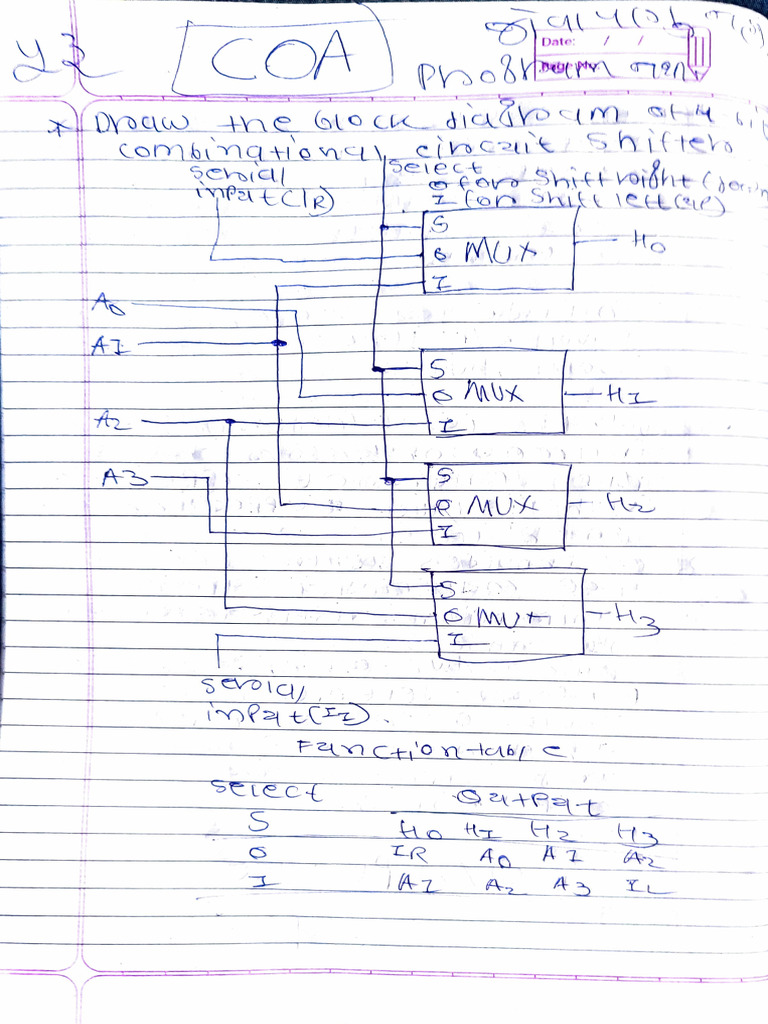 COA
Date: / /
* Draw the block diagram of 4 bit
combinational circuit shifter
serial select
input (IR) 0 for shift right (down)
I for shift left (up)
S
0 MUX H0
I
A0
A1
S
0 MUX H1
I
A2
S
0 MUX H2
I
A3
S
0 MUX H3
I
serial
input (IL).
Function table
select Output
S H0 H1 H2 H3
0 IR A0 A1 A2
I A1 A2 A3 IL